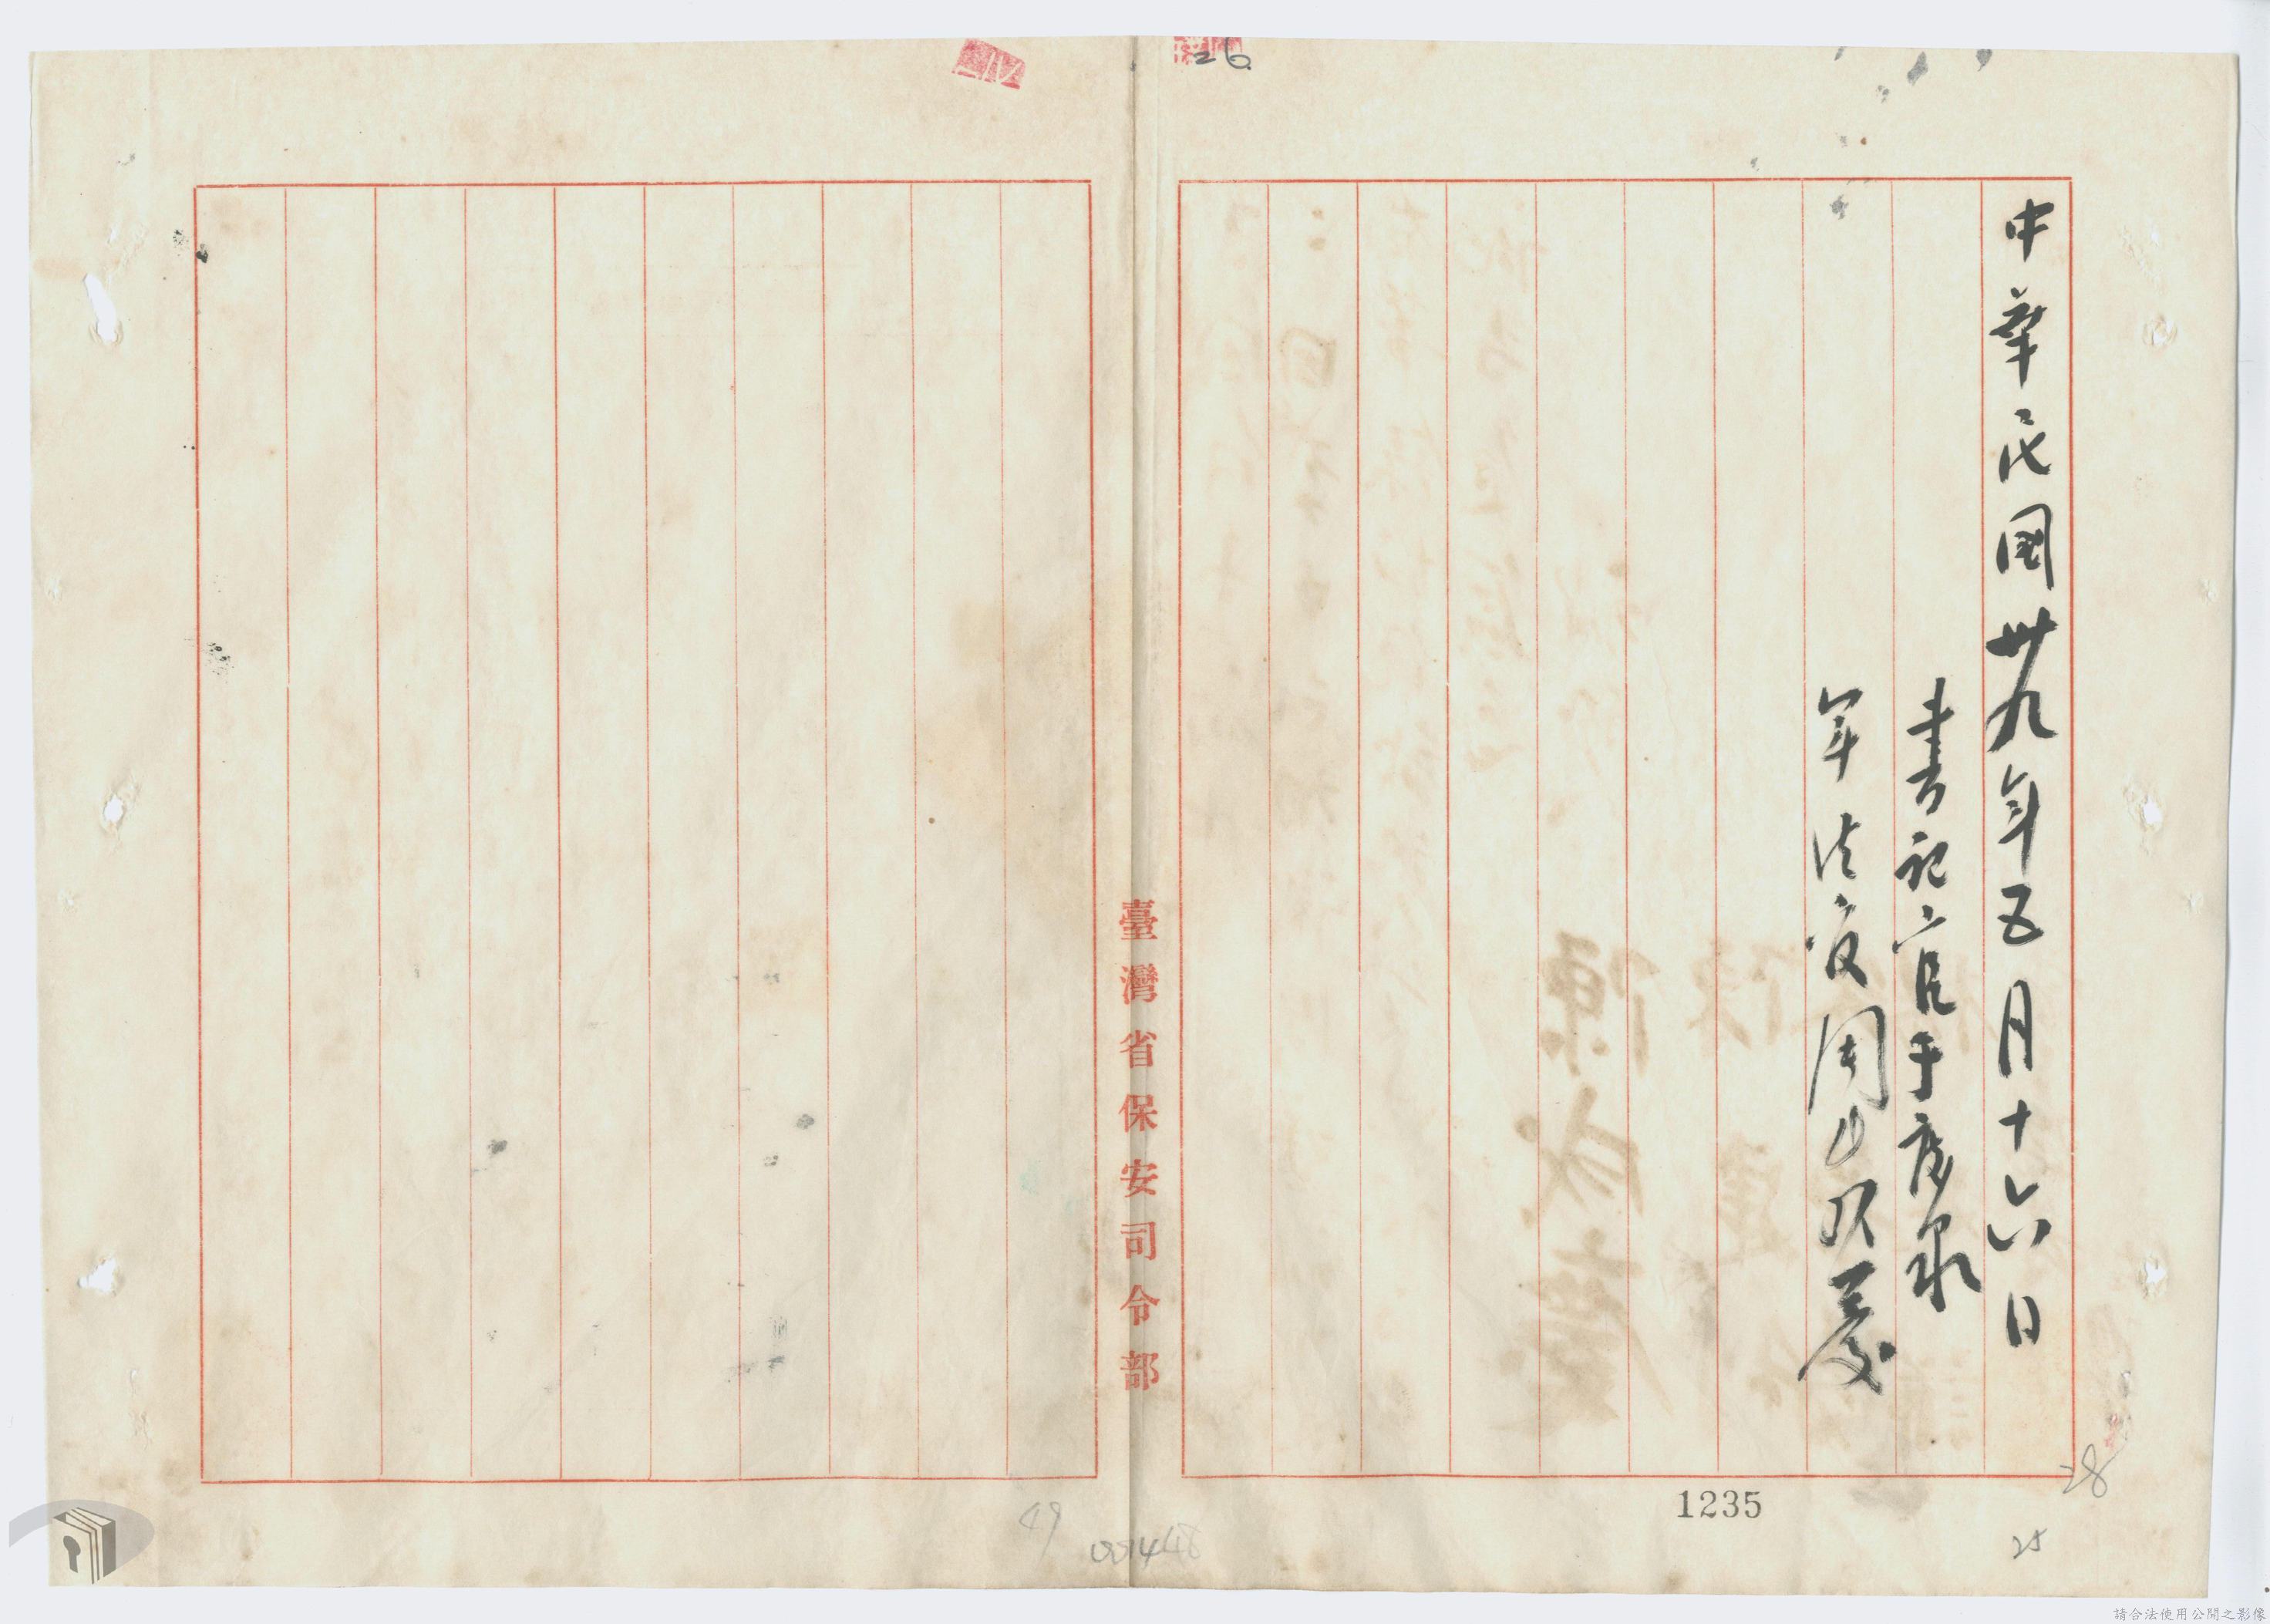 26
中華民國卅九年五月十六日
書記官于
軍法官周
臺灣省保安司令部
28
1235
25
49
001448
請合法使用公開之影像